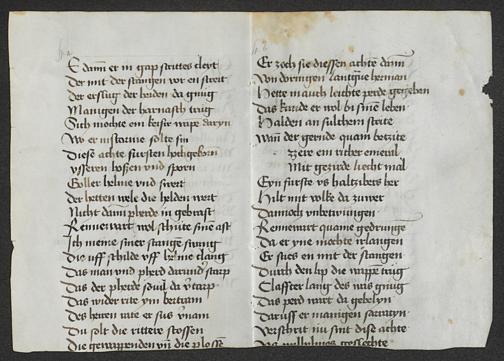 E dann er in gap strites
Der mit der stangen vor en streit
der erslug der heiden da gnug
Manigen der harnasch trug
Sich mochte ein keiser wape daryn
Wo er in sturme solte sin
Diese achte fursten hochgeborn
ysseren hossen vnd sporn
Coller helme vnd swert
der hetten wele die helden wert
Nicht dann pherde in gebrast
Rennewart wol schutte sine ast
Ich meine siner stange swung
Die uff schilde vff helme clang
Das man vnd pherd darund starp
Das der pherde souil da
Das wider rite yn bertram
Des heren rate er sus vnam
Du solt die rittere stossen
Die gewappenden vn die plossen
Er zoch sie diessen achte dann
Von doringen lantgreue herman
Hette in auch lichte perde gegeben
Das kunde er wol bi sinen leben
Halden an sulchem strite
Wan der gernde quam betzite
Eyn furste vs
Hilt mit volke da zuwer
Dannoch vnbetwungen
Rennewart quame gedrungen
Da er yne mochte irlangen
Er sties en mit der stangen
Durch den lip die wappe trug
Claffter lang des was gnug
Das perd wart da gebelyn
Daruff er manigen sarratzyn
Verschrit nu sint dise achte